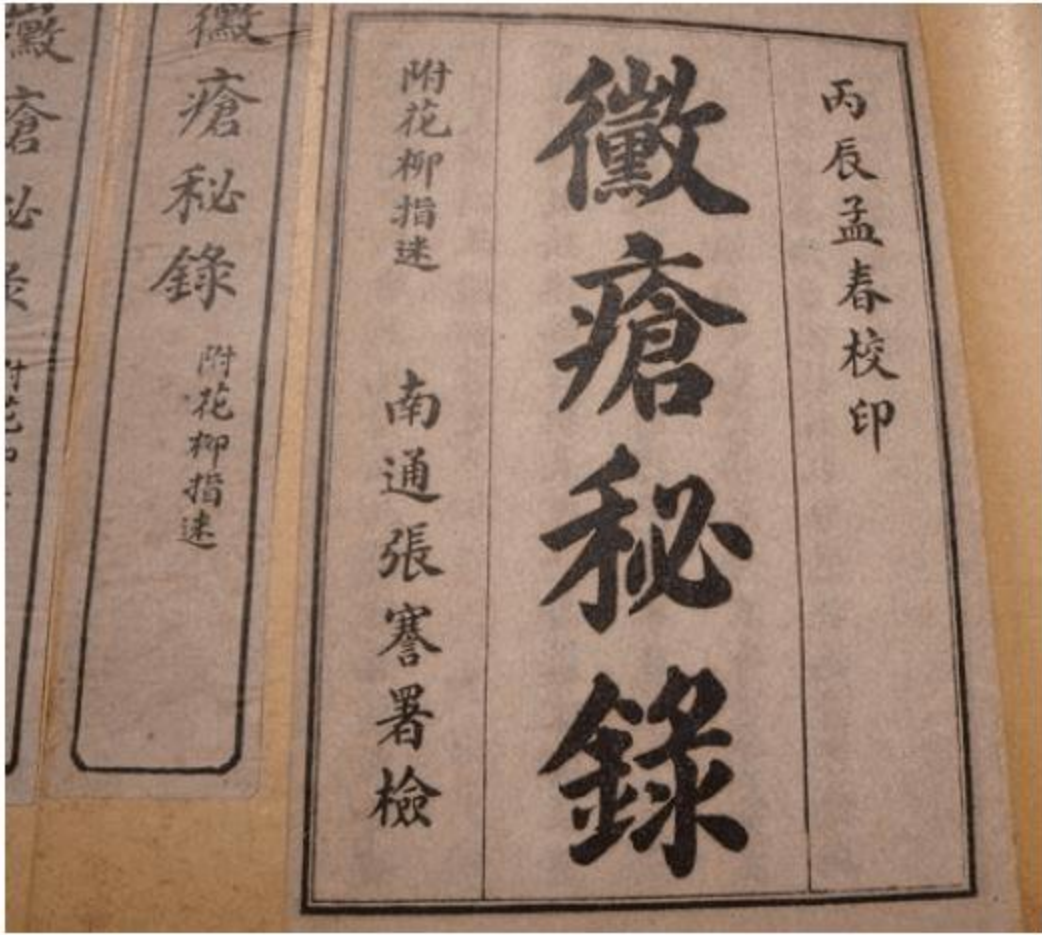 丙辰孟春校印
黴瘡秘錄
附花柳指迷
南通張謇署檢
黴瘡秘錄
附花柳指迷
黴瘡秘錄
附花柳